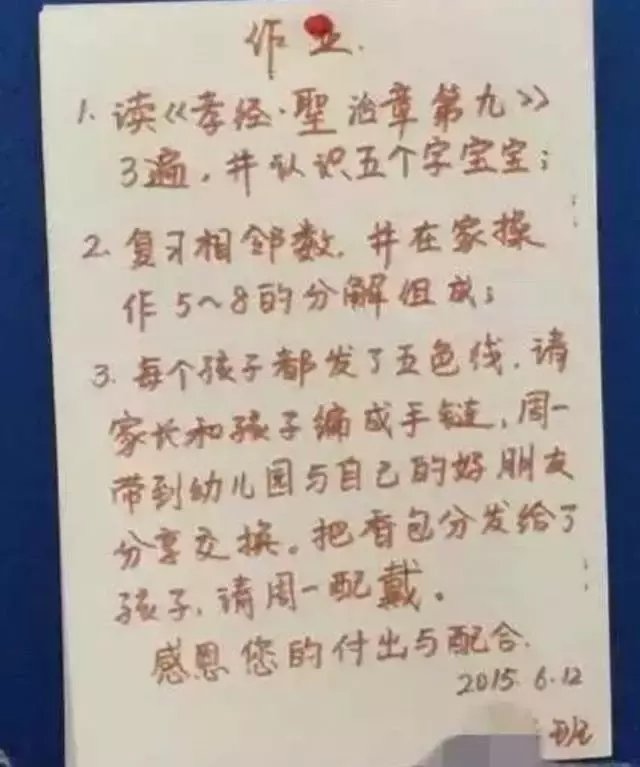 作业.
1. 读《孝经·聖治章第九》
3遍，并认识五个字宝宝；
2. 复习相邻数，并在家操
作5～8的分解组成；
3. 每个孩子都发了五色线，请
家长和孩子编成手链，周一
带到幼儿园与自己的好朋友
分享交换。把香包分发给了
孩子，请周一配戴。
感恩您的付出与配合.
2015.6.12
班